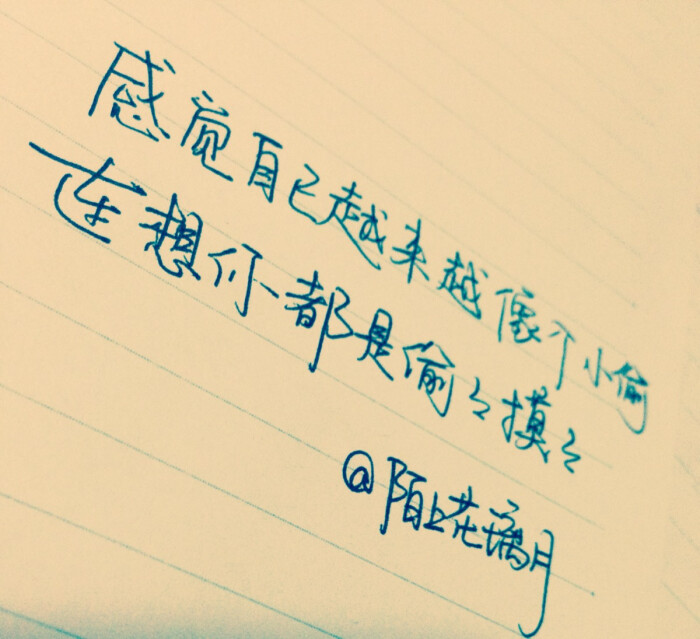 感觉自己越来越像个小偷
连想你都是偷〻摸〻
@陌上花璃月